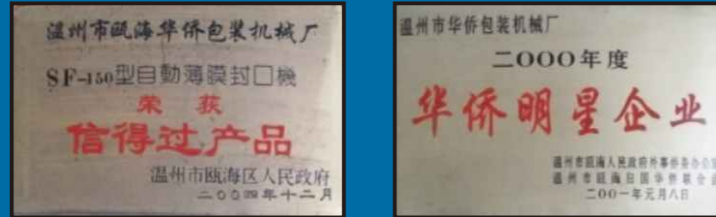 温州市瓯海华侨包装机械厂
SF-150型自動薄膜封口機
荣获
信得过产品
温州市瓯海区人民政府
二〇〇四年十二月
温州市华侨包装机械厂
二〇〇〇年度
华侨明星企业
温州市瓯海人民政府外事侨务办公室
温州市瓯海归国华侨联合会
二〇〇一年元月八日